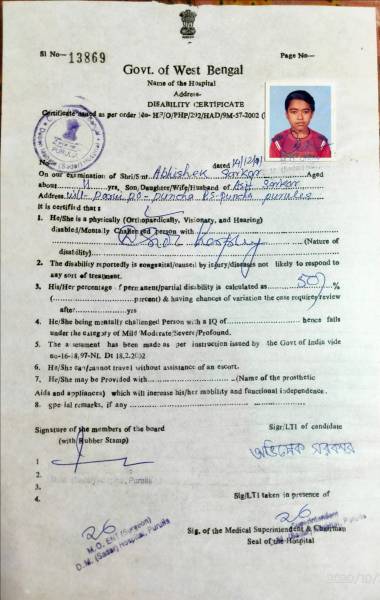 Sl No— 13869
Page No—
Govt. of West Bengal
Name of the Hospital
Address-
DISABILITY CERTIFICATE
Certificate issued as per order No- HF/O/PHP/292/HAD/9M-57-2002
No dated
On our examination of Shri/Smt. Abhishek Sarkar Aged
about yrs, Son/Daughter/Wife/Husband of Sarkar
Address. Vill- PO- Puncha PS- Puncha Purulia
It is certified that :
1. He/She is a physically (Orthopaedically, Visionary, and Hearing)
disabled/Mentally Challenged person with
(Nature of
disability)
2. The disability reportedly is congenital/caused by injury/diseases not likely to respond to
any sort of treatment.
3. His/Her percentage of permanent/partial disability is calculated as 50 %
( percent) & having chances of variation the case require/review
after yrs
4. He/She being mentally challenged Person with a IQ of hence falls
under the category of Mild Moderate/Severe/Profound.
5. The assessment has been made as per instruction issued by the Govt of India vide
no-16-18,97-NL Dt 18.2.2002
6. He/She can/cannot travel without assistance of an escort.
7. He/She may be Provided with (Name of the prosthetic
Aids and appliances) which will increase his/her mobility and functional independence.
8. special remarks, if any
Signature of the members of the board
Sigr/LTI of candidate
(with Rubber Stamp)
অভিষেক সরকার
1
2.
3.
4.
Sig/LTI taken in presence of
Sig. of the Medical Superintendent & Chairman
Seal of the Hospital
M.O. ENT (Surgeon)
D.M. (Sadar) Hospital, Purulia
2020/10/